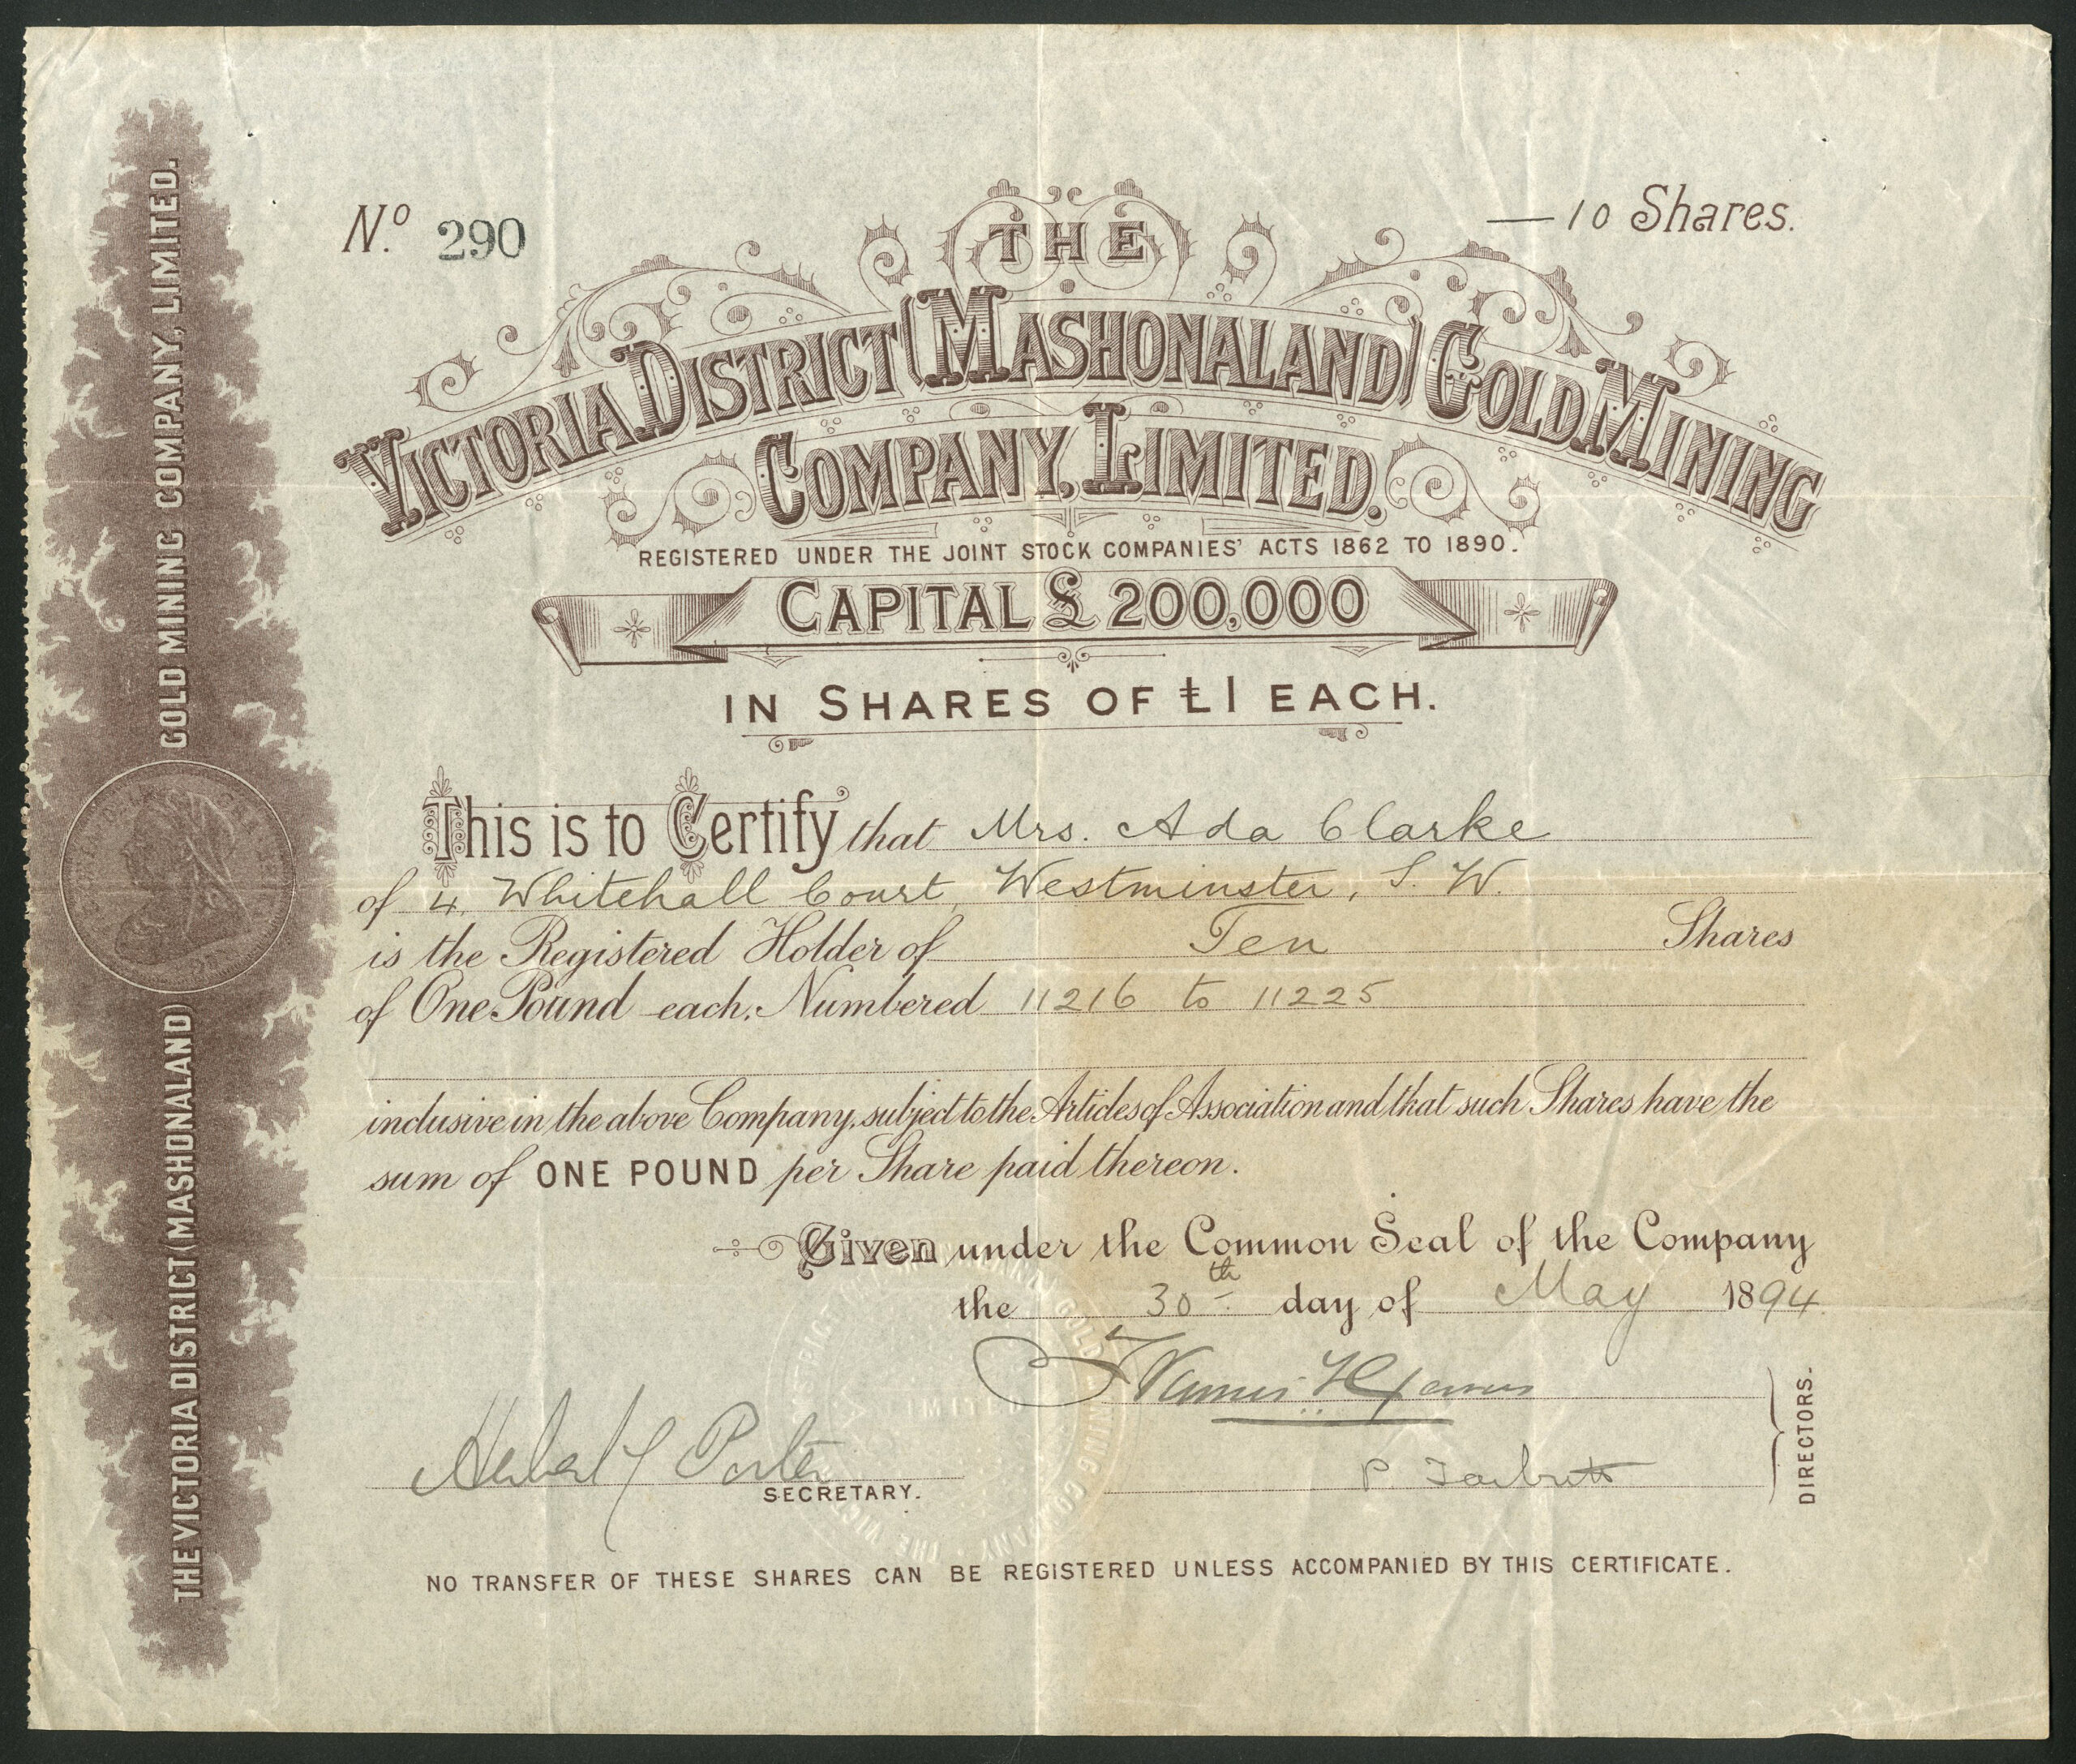 No. 290
— 10 Shares.
THE
VICTORIA DISTRICT (MASHONALAND) GOLD MINING
COMPANY, LIMITED.
REGISTERED UNDER THE JOINT STOCK COMPANIES' ACTS 1862 TO 1890.
CAPITAL £200,000
IN SHARES OF £1 EACH.
This is to Certify that Mrs. Ada Clarke
of 4, Whitehall Court, Westminster, S.W.
is the Registered Holder of Ten Shares
of One Pound each. Numbered 11216 to 11225
inclusive in the above Company, subject to the Articles of Association and that such Shares have the
sum of ONE POUND per Share paid thereon.
Given under the Common Seal of the Company
the 30th day of May 1894
DIRECTORS.
Porter
SECRETARY.
NO TRANSFER OF THESE SHARES CAN BE REGISTERED UNLESS ACCOMPANIED BY THIS CERTIFICATE.
THE VICTORIA DISTRICT (MASHONALAND) GOLD MINING COMPANY, LIMITED.